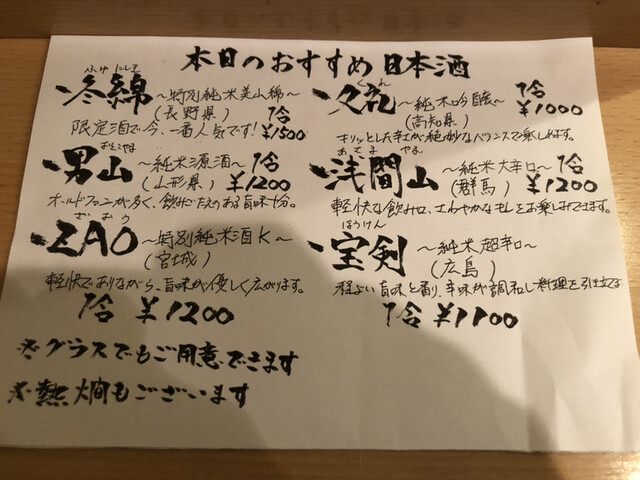 本日のおすすめ日本酒
ふゆ にしき
冬綿 ～特別純米美山棉～ 1合
(長野県) ¥1500
限定酒で今、一番人気です!
おとこやま
男山 ～純米源酒～ 1合
(山形県) ¥1200
オールドファンが多く、飲みごたえのある旨味十分。
ざおう
ZAO ～特別純米酒K～
(宮城)
軽快でありながら、旨味が優しく広がります。
1合 ¥1200
※グラスでもご用意できます
※熱燗もございます
～純米吟醸～ 1合
(高知県) ¥1000
キリッとした辛さが絶妙なバランスで楽しめます。
あさま やま
浅間山 ～純米大辛口～ 1合
(群馬) ¥1200
軽快な飲み口、さわやかなキレをお楽しみできます。
ほうけん
宝剣 ～純米超辛口～
(広島)
程よい旨味と香り、辛味が調和し料理を引立てます
1合 ¥1100